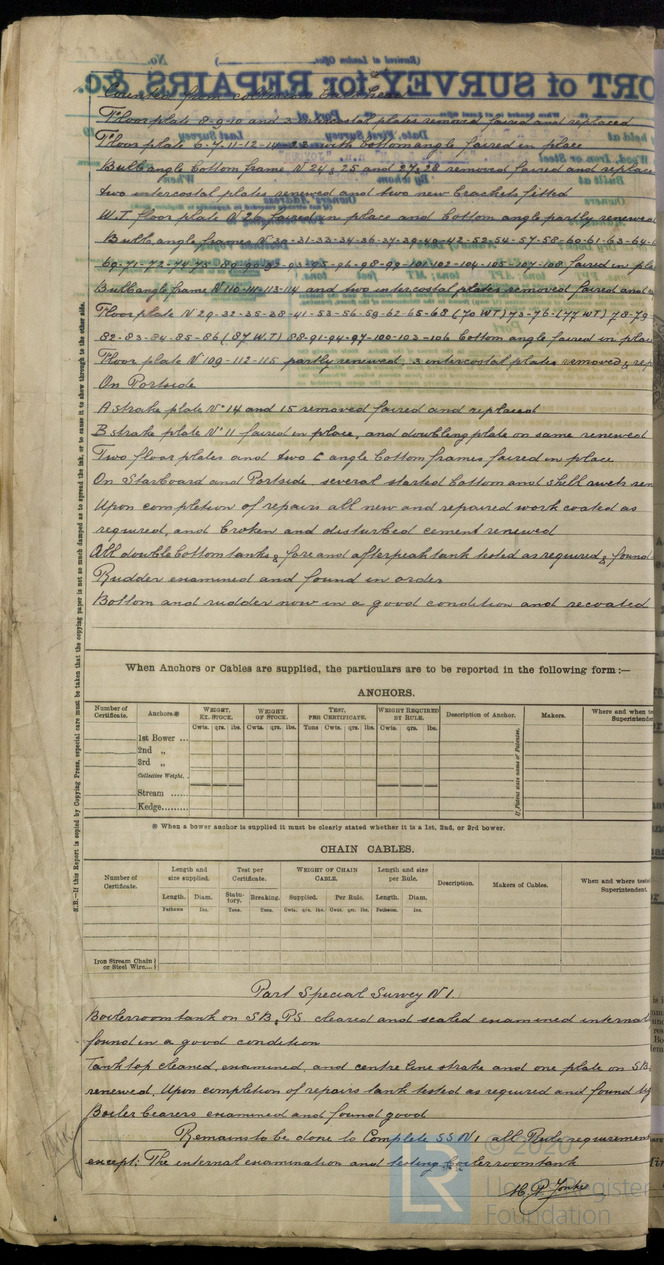 Floor plate 8-9-10 and 3 intercostal plates removed faired and replaced
Floor plate 6-7-11-12-14-22 with bottom angle faired in place
Bulb angle bottom frame No 24 & 25 and 27 & 28 removed faired and replace
two intercostal plates renewed and two new brackets fitted
W.T. floor plate No 26 faired in place and bottom angle partly renewed
Bulb angle frames No 30-31-33-34-36-37-39-40-42-52-54-57-58-60-61-63-64-
69-71-72-74-75 faired in pla
Bulb angle frame No 110-111-113-114 and two intercostal plates removed faired and
Floor plate No 29-32-35-38-41-53-56-59-62-65-68 (70 WT) 73-76-(77 WT) 78-79-
82-83-84-85-86 (87 W.T) 88-91-94-97-100-103-106 bottom angle faired in plac
Floor plate No 109-112-115 partly renewed, 3 intercostal plates removed & rep
On Portside
A strake plate No 14 and 15 removed faired and replaced
B strake plate No 11 faired in place, and doubling plate on same renewed
Two floor plates and two angle bottom frames faired in place
On Starboard and Portside several started bottom and shell rivets ren
Upon completion of repairs all new and repaired work coated as
required, and broken and disturbed cement renewed
All double bottom tanks, fore and afterpeak tank tested as required & found
Rudder examined and found in order
Bottom and rudder now in a good condition and recoated
N.B.—If this Report is copied by Copying Press, especial care must be taken that the copying paper is not so much damped as to spread the ink, or to cause it to show through to the other side.
When Anchors or Cables are supplied, the particulars are to be reported in the following form:—
ANCHORS.
Number of Certificate. Anchors.※ WEIGHT, EX. STOCK. WEIGHT OF STOCK. TEST, PER CERTIFICATE. WEIGHT REQUIRED BY RULE. Description of Anchor. Makers. Where and when te Superintende
Cwts. qrs. lbs. Cwts. qrs. lbs. Tons Cwts. qrs. lbs. Cwts. qrs. lbs.
1st Bower ...
2nd „
3rd „
Collective Weight.
Stream ......
Kedge.........
If Patent state name of Patentee.
※ When a bower anchor is supplied it must be clearly stated whether it is a 1st, 2nd, or 3rd bower.
CHAIN CABLES.
Number of Certificate. Length and size supplied. Test per Certificate. WEIGHT OF CHAIN CABLE. Length and size per Rule. Description. Makers of Cables. When and where teste Superintendent.
Length. Diam. Statutory. Breaking. Supplied. Per Rule. Length. Diam.
Fathoms Ins. Tons. Tons. Cwts. qrs. lbs. Cwts. qrs. lbs. Fathoms. Ins.
Iron Stream Chain or Steel Wire...
Part Special Survey No 1.
Boilerroom tank on SB & PS cleared and scaled examined internal
found in a good condition
Tank top cleaned, examined, and centre line strake and one plate on SB
renewed, Upon completion of repairs tank tested as required and found
Boiler bearers examined and found good
Remains to be done to Complete SS No 1 all Rule requirement
except: The internal examination and testing boilerroom tank
© 2020
Lloyd's Register
Foundation
LR